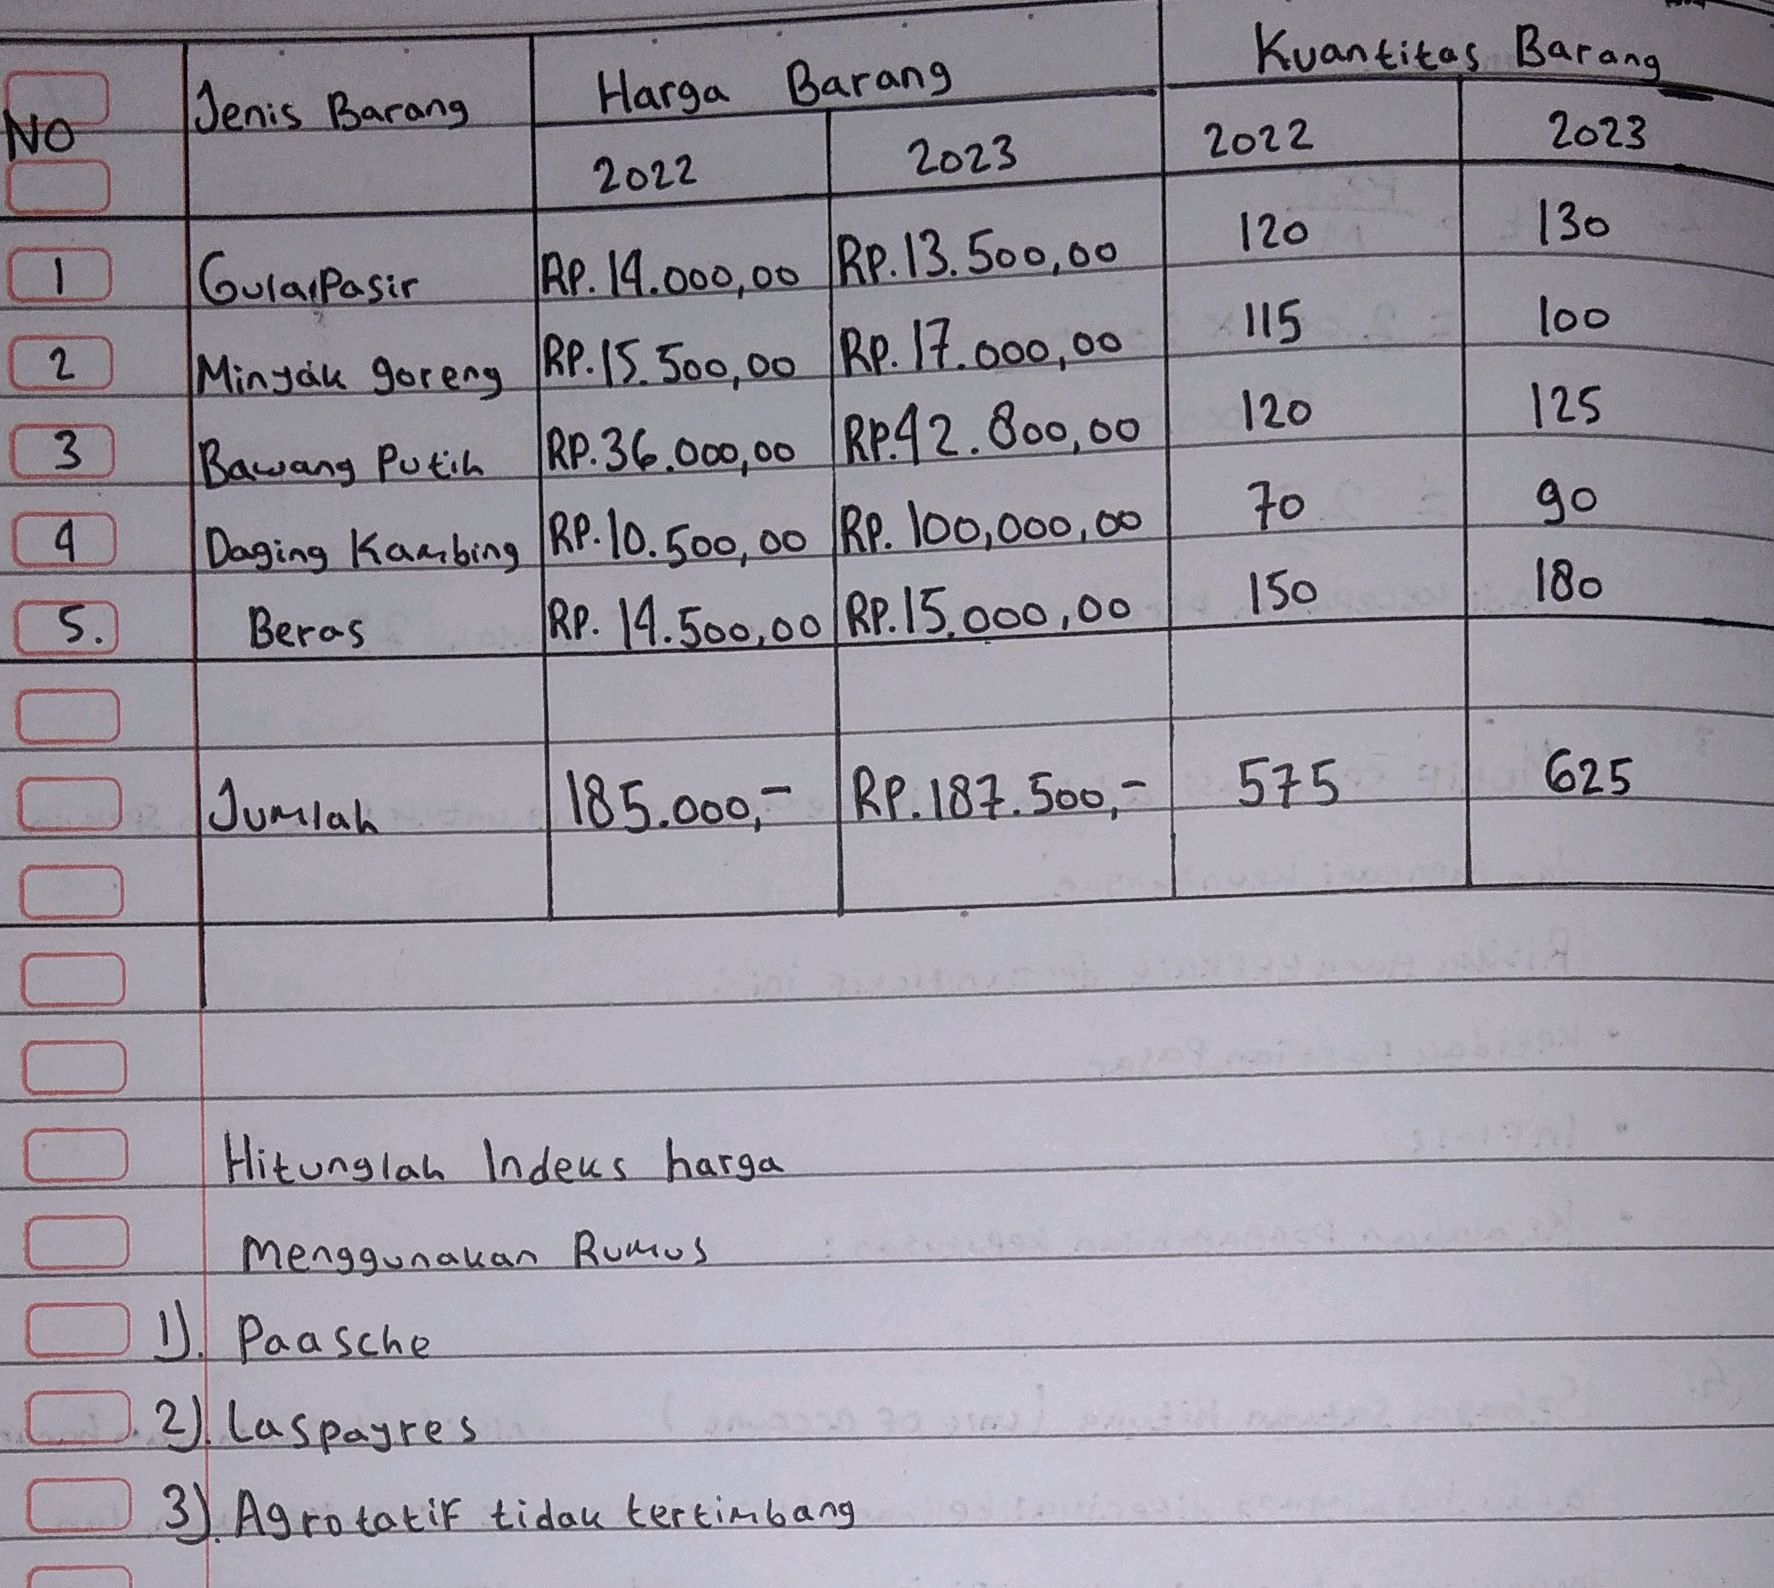 NO Jenis Barang Harga Barang Kuantitas Barang
2022 2023 2022 2023
1 Gula Pasir RP. 14.000,00 RP. 13.500,00 120 130
2 Minyak goreng RP. 15.500,00 RP. 17.000,00 115 100
3 Bawang Putih RP. 36.000,00 RP. 42.800,00 120 125
4 Daging Kambing RP. 10.500,00 RP. 100,000,00 70 90
5. Beras RP. 14.500,00 RP. 15.000,00 150 180
Jumlah 185.000,- RP. 187.500,- 575 625
Hitunglah Indeks harga
Menggunakan Rumus
1). Paasche
2). Laspayres
3). Agrotatif tidak tertimbang